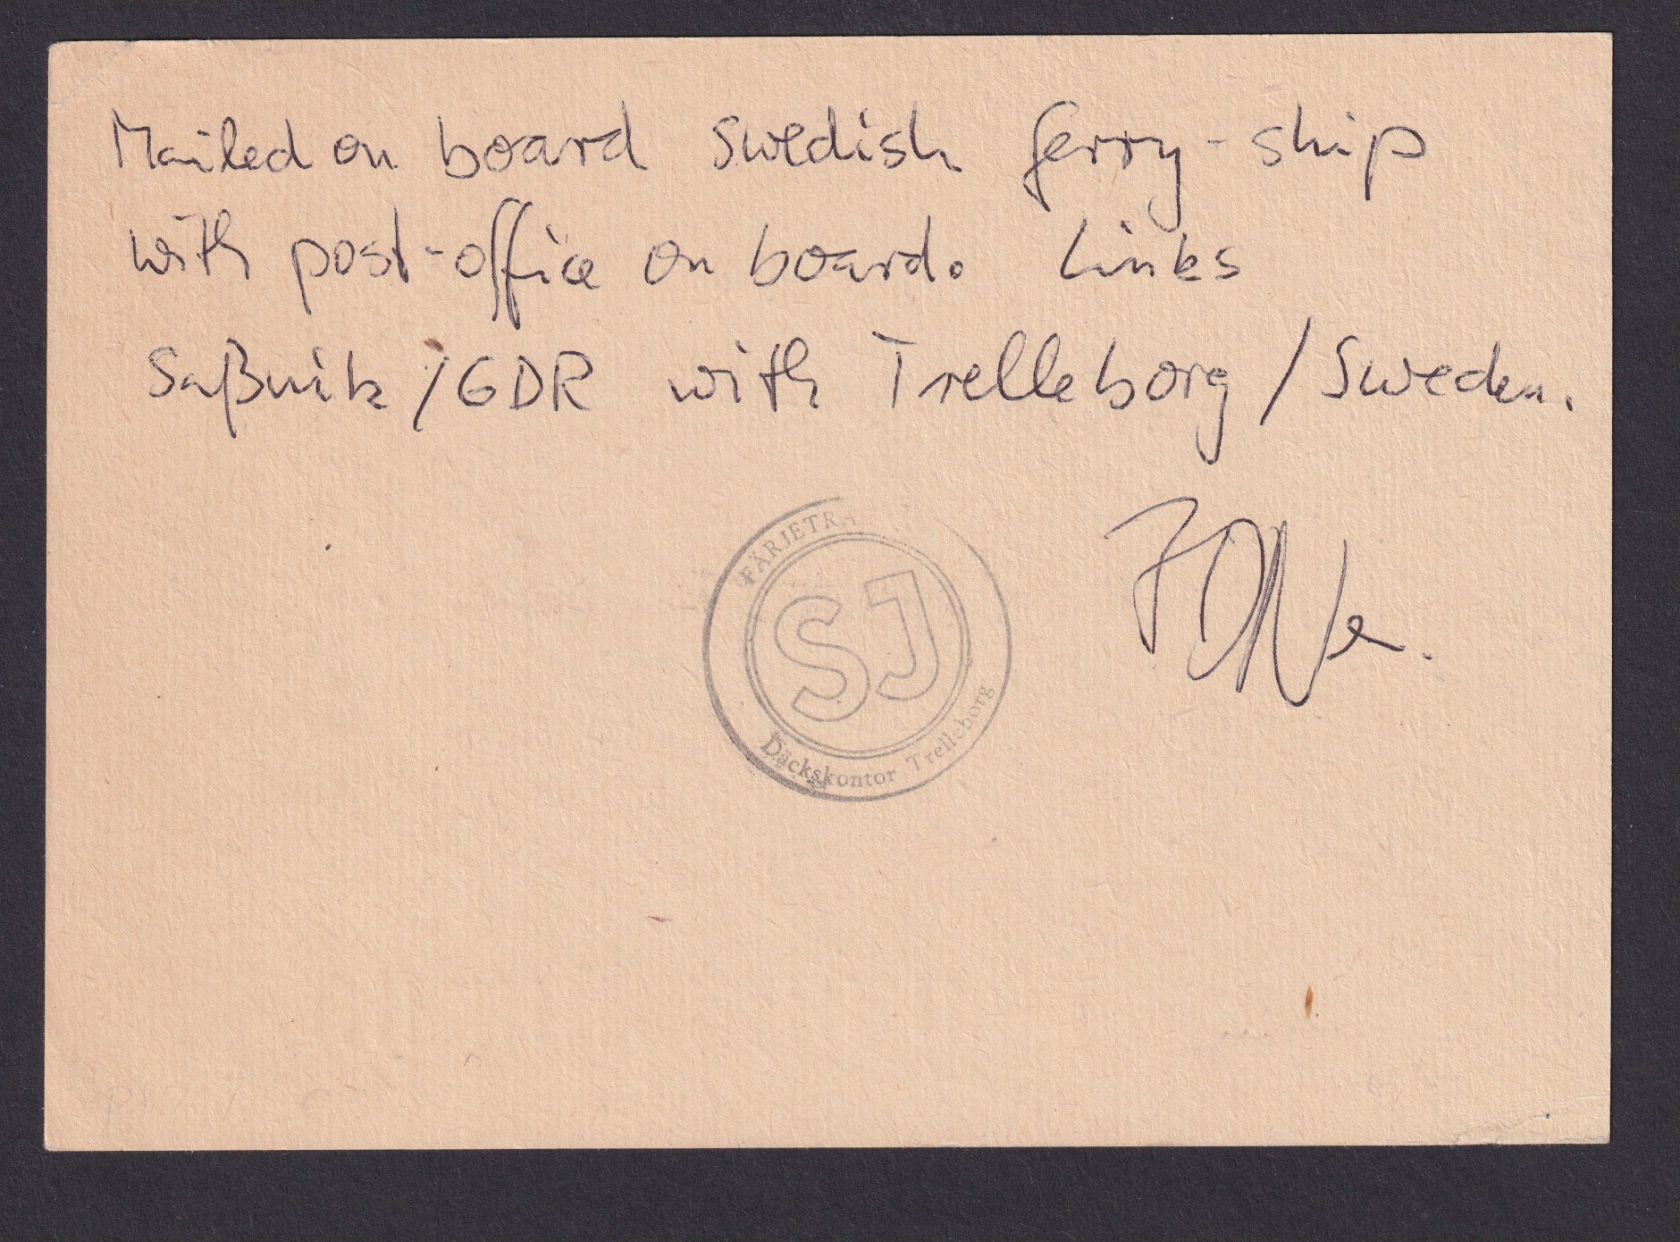 Mailed on board Swedish ferry-ship
with post-office on board. Links
Saßnik/GDR with Trelleborg/Sweden.
FÄRJETRA
SJ
Däckskontor Trelleborg